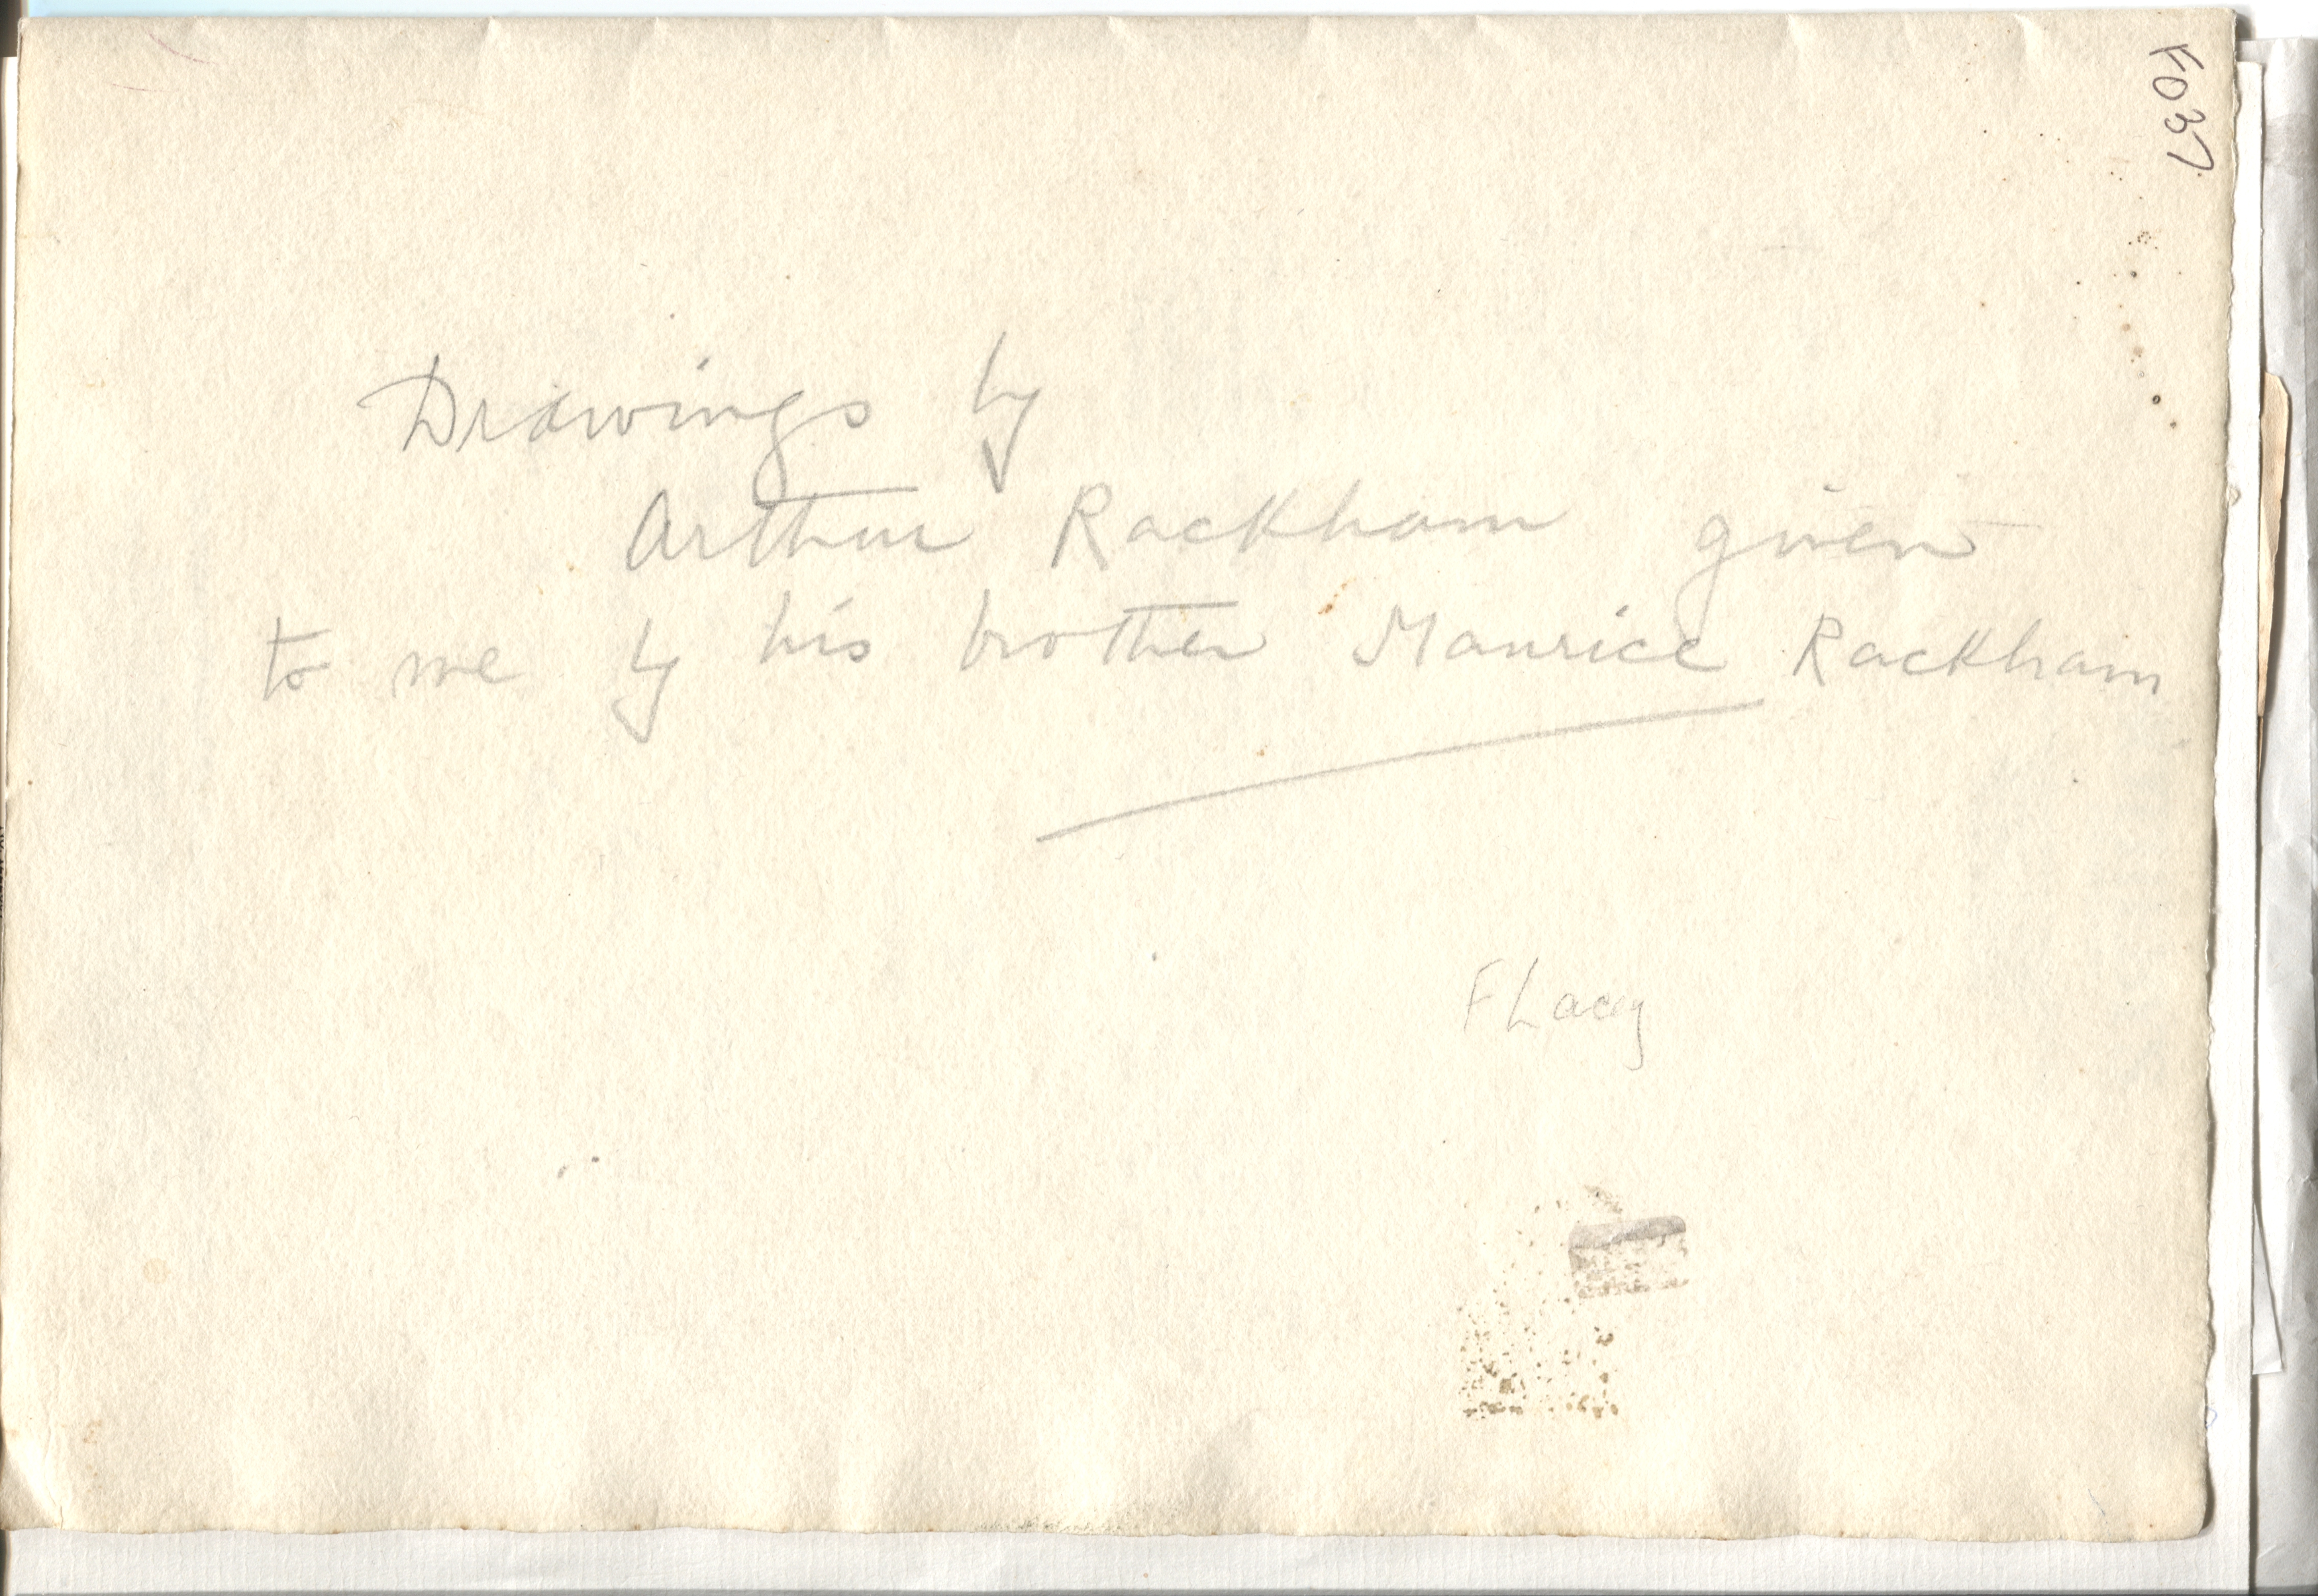 Drawings by
Arthur Rackham given
to me by his brother Maurice Rackham
F Lacy